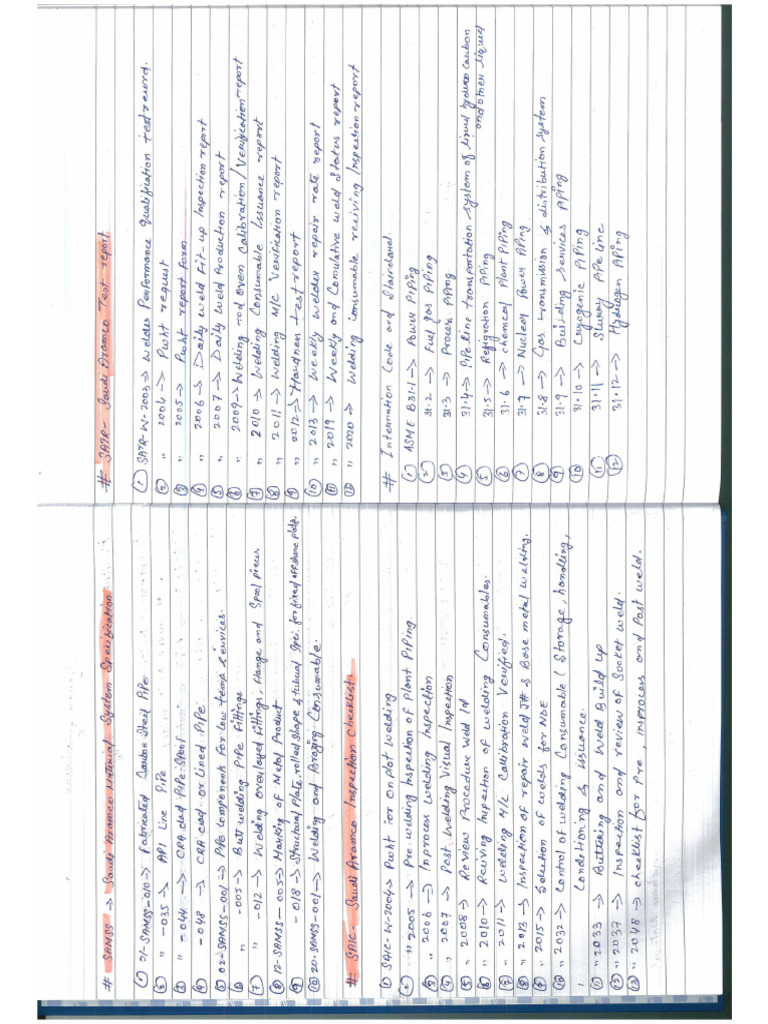 # SAMSS → Saudi Aramco Material System Specification
① 01-SAMSS-010 → Fabricated Carbon Steel Pipe
② " -035 → API Line Pipe
③ " -044 → CRA clad Pipe Spool
④ -048 → CRA clad or Lined Pipe
⑤ 02-SAMSS-001 → Pipe Components for Low temp Services
⑥ " -005 → Butt welding Pipe Fittings
⑦ " -012 → Welding overlayed fittings, flange and Spool pieces
⑧ 12-SAMSS-005 → Marking of Metal Product
⑨ -018 → Structural Plate, rolled shape & tubual Spec. for fixed offshore plate.
⑩ 20-SAMSS-001 → Welding and Brazing Consumable.
# SAIC - Saudi Aramco Inspection Checklist
① SAIC-W-2004 → Pwht for onplot welding
② " 2005 → Pre-welding Inspection of Plant Piping
③ " 2006 → Inprocess welding Inspection
④ " 2007 → Post Welding Visual Inspection
⑤ " 2008 → Review Procedure Weld Id
⑥ " 2010 → Reciving Inspection of welding Consumables.
⑦ " 2011 → welding M/c Callibration Verified.
⑧ " 2013 → Inspection of repair weld J# & Base metal welding.
⑨ " 2015 → Selection of welds for NDE
⑩ " 2032 → Control of welding Consumable (Storage, handling,
Conditioning & issuance.
⑪ " 2033 → Buttering and Weld Build up
⑫ " 2037 → Inspection and review of Socket weld.
⑬ " 2048 → checklist for Pre, inprocess and Post weld.
# SATR - Saudi Aramco Test report
① SATR-W-2003 → Welder Performance Qualification test record.
② " 2004 → Pwht request
③ " 2005 → Pwht report form
④ " 2006 → Daily weld Fit-up Inspection report
⑤ " 2007 → Daily Weld Production report
⑥ " 2009 → Welding rod oven Calibration/Verification report
⑦ " 2010 → Welding Consumable Issuance report
⑧ " 2011 → Welding M/C Verification report
⑨ " 2012 → Hardnen test report
⑩ " 2013 → Weekly welder repair rate report
⑪ " 2019 → Weekly and Comulative weld Status report
⑫ " 2020 → Welding consumable reciving Inspection report
# Internation Code and Standard.
① ASME B31.1 → Power Piping
② 31.2 → Fuel gas Piping
③ 31.3 → Process Piping
④ 31.4 → Pipe line transportation system of liquid hydro carbon
and other liquid
⑤ 31.5 → Refigration Piping
⑥ 31.6 → chemical Plant Piping
⑦ 31.7 → Nuclear Power Piping
⑧ 31.8 → Gas transmission & distribution system
⑨ 31.9 → Building services Piping
⑩ 31.10 → Cryogenic Piping
⑪ 31.11 → Slurry Pipe line
⑫ 31.12 → Hydrogen Piping